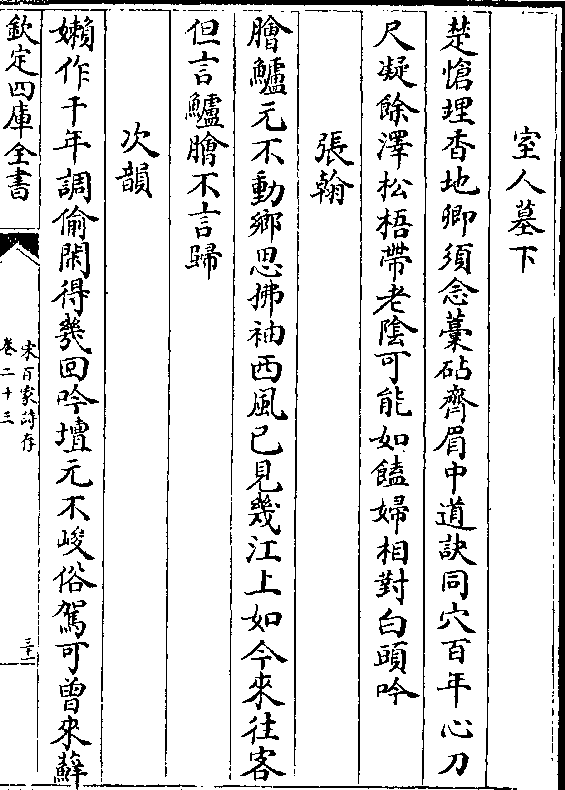 室人墓下
楚愴埋香地卿須念藁砧齊眉中道訣同穴百年心刀
尺凝餘澤松梧帶老陰可能如饁婦相對白頭吟
張翰
膾鱸元不動鄉思拂袖西風已見幾江上如今來往客
但言鱸膾不言歸
次韻
嬾作千年調偷閑得幾回吟壇元不峻俗駕可曾來蘚
欽定四庫全書
宋百家詩存
卷二十三
三十一